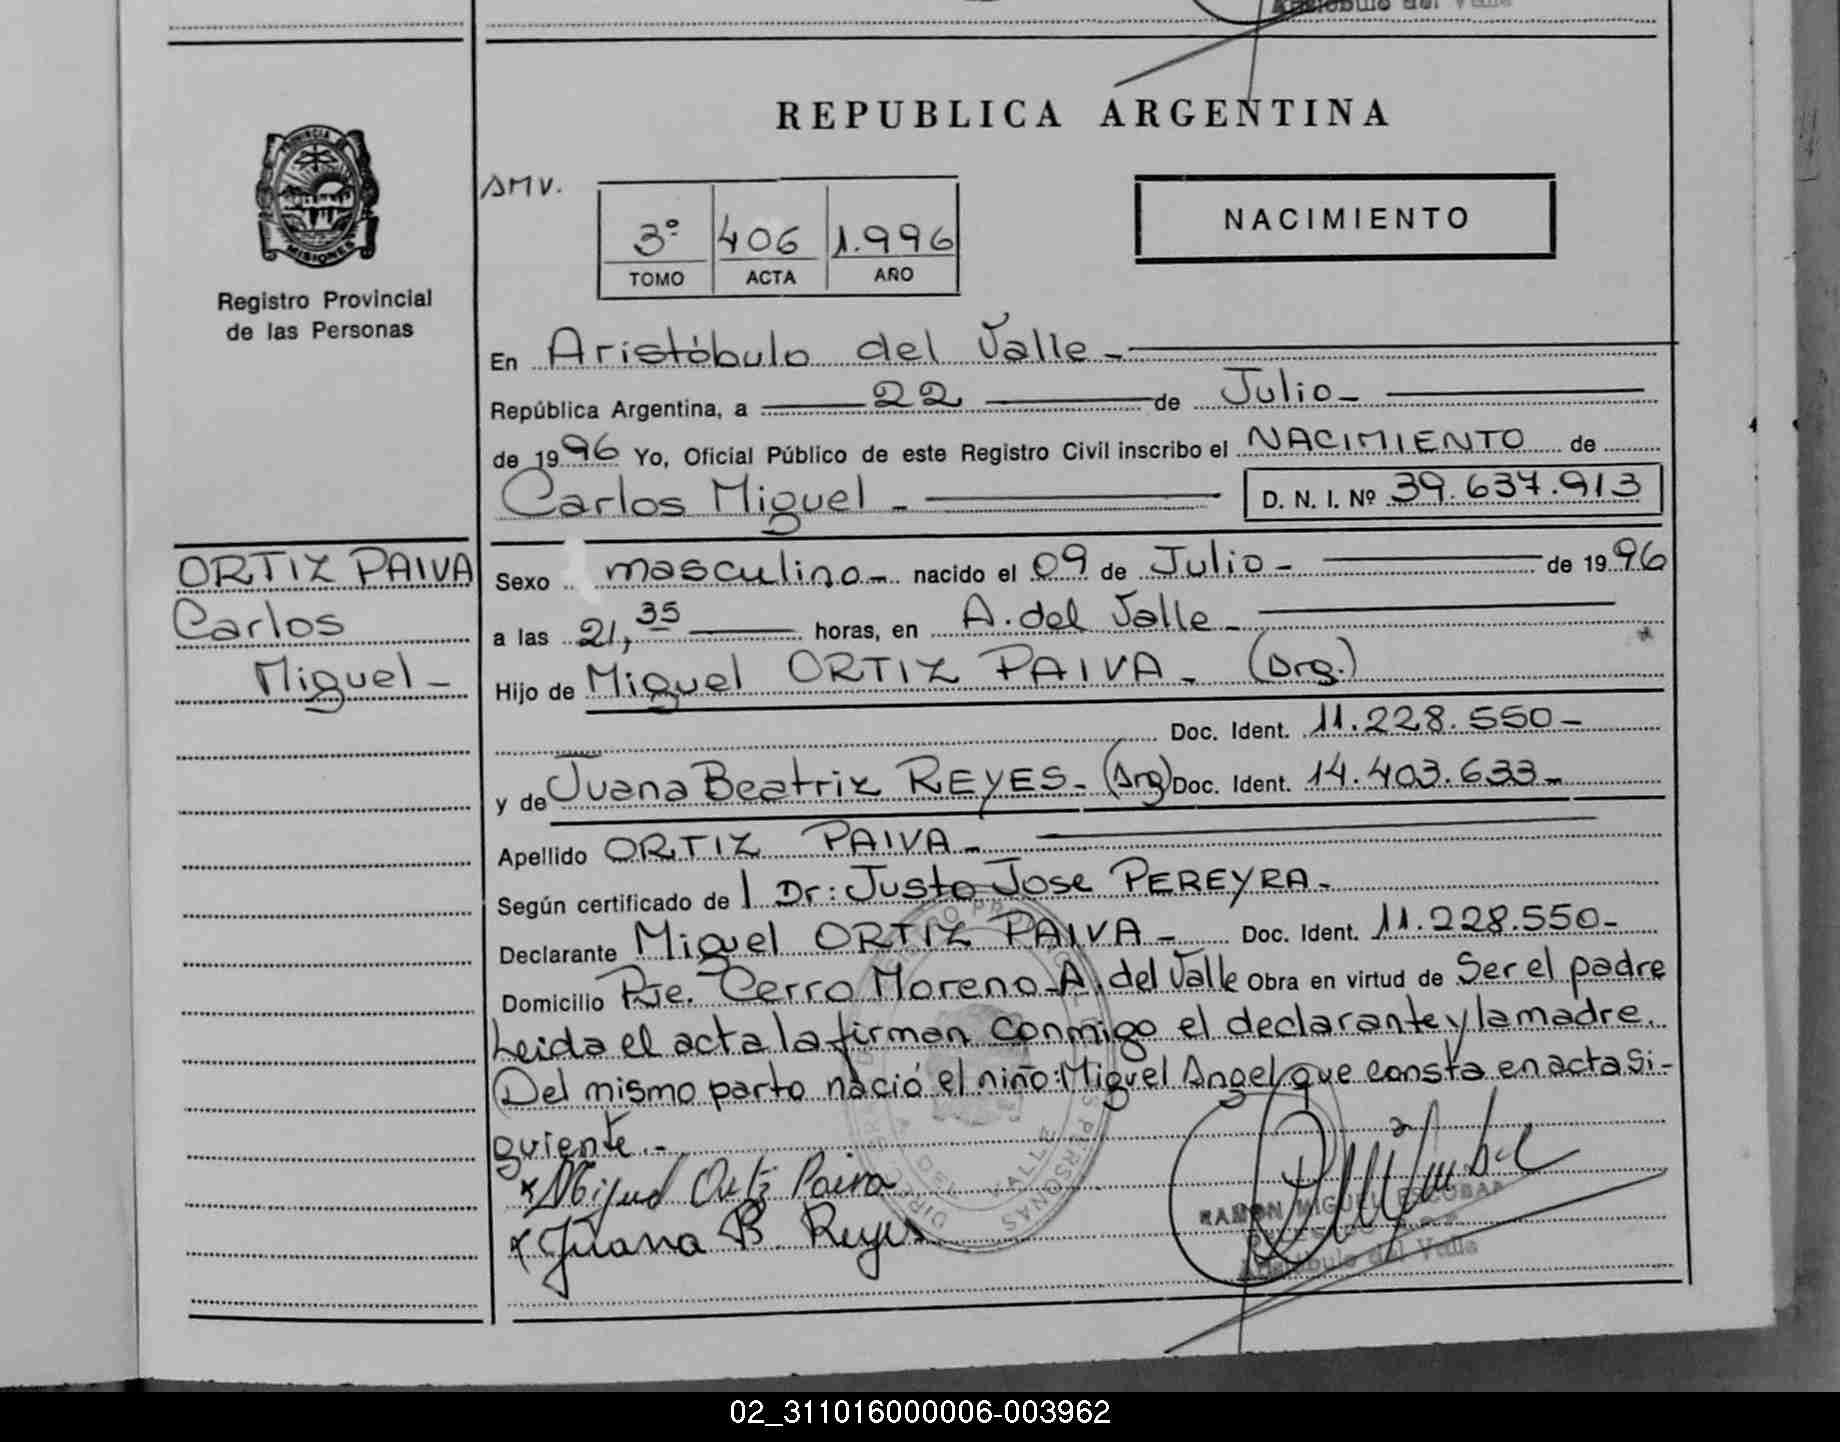 Aristobulo del Valle
REPUBLICA ARGENTINA
PROVINCIA DE
MISIONES
Registro Provincial
de las Personas
AMV.
3º 406 1.996
TOMO ACTA AÑO
NACIMIENTO
En Aristóbulo del Valle -
República Argentina, a 22 de Julio -
de 1996 Yo, Oficial Público de este Registro Civil inscribo el NACIMIENTO de
Carlos Miguel - D. N. I. Nº 39.637.913
ORTIZ PAIVA
Carlos
Miguel -
Sexo masculino - nacido el 09 de Julio - de 1996
a las 21,35 horas, en A. del Valle -
Hijo de Miguel ORTIZ PAIVA - (Arg.)
Doc. Ident. 11.228.550 -
y de Juana Beatriz REYES - (Arg) Doc. Ident. 14.403.633 -
Apellido ORTIZ PAIVA -
Según certificado de Dr: Justo Jose PEREYRA -
Declarante Miguel ORTIZ PAIVA - Doc. Ident. 11.228.550 -
Domicilio Pje. Cerro Moreno - A. del Valle Obra en virtud de Ser el padre
Leida el acta la firman conmigo el declarante y la madre.
Del mismo parto nació el niño: Miguel Angel que consta en acta si-
guiente. -
x Miguel Ortiz Paiva
x Juana B. Reyes
RAMON MIGUEL ESCOBAR
Aristobulo del Valle
02_311016000006-003962